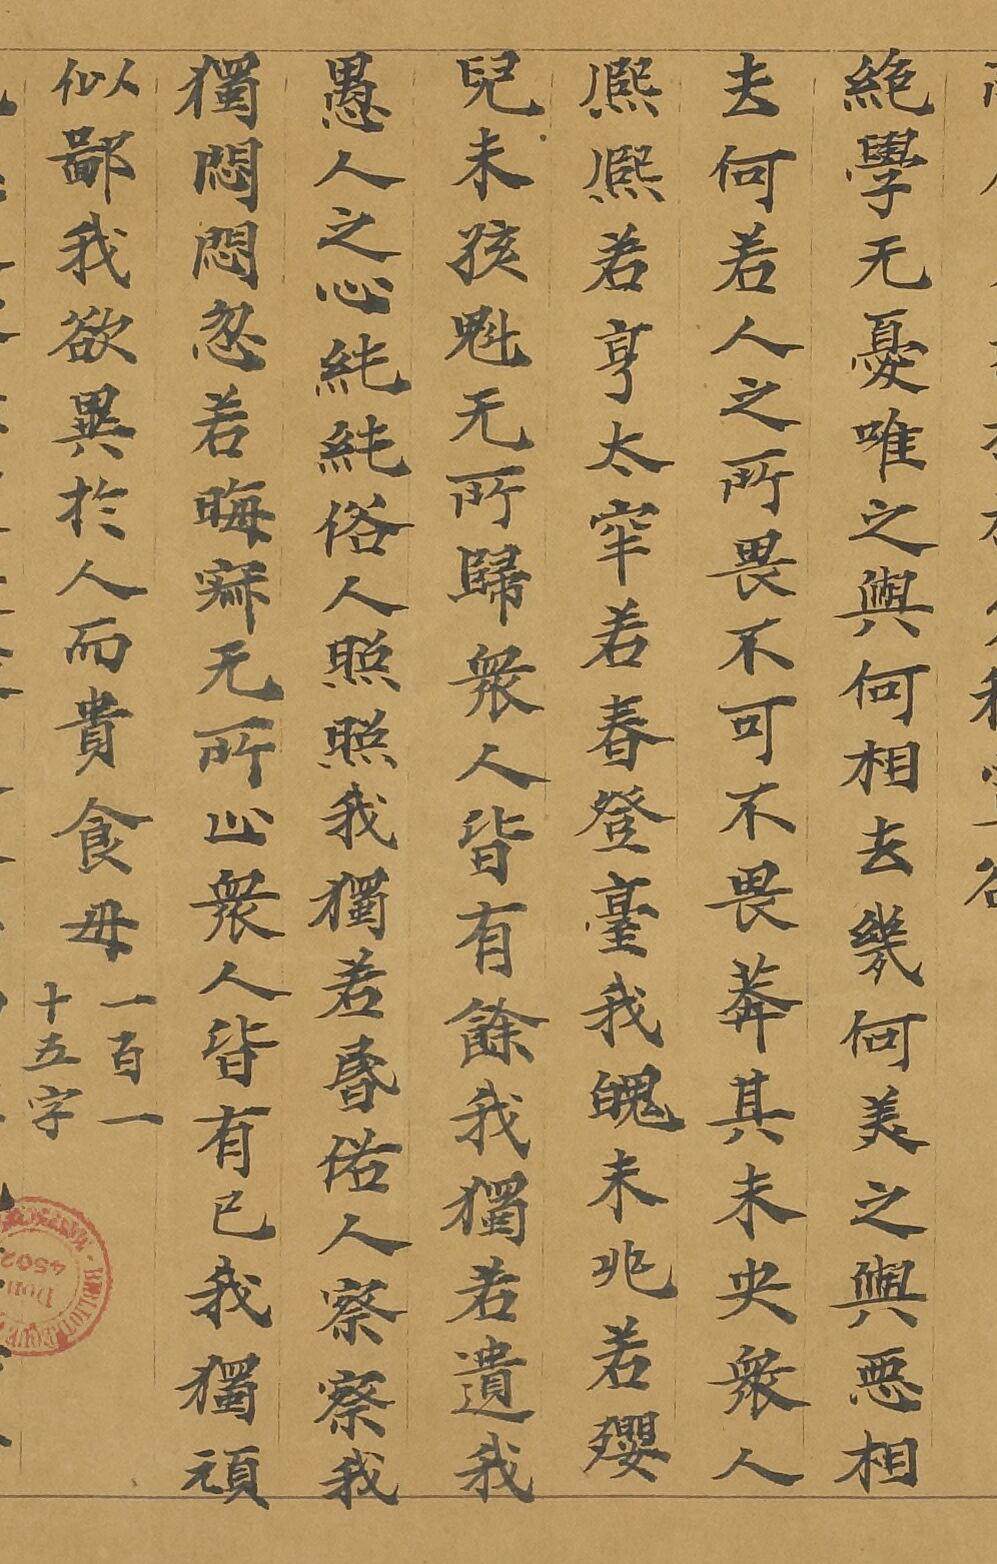 絶學无憂唯之與何相去幾何美之與惡相
去何若人之所畏不可不畏莽其未央衆人
熈熈若亨太牢若春登臺我魄未兆若嬰
兒未孩魁无所歸衆人皆有餘我獨若遺我
愚人之心純純俗人照照我獨若昏俗人察察我
獨悶悶忽若晦寂无所止衆人皆有已我獨頑
似鄙我欲異於人而貴食母一百一十五字